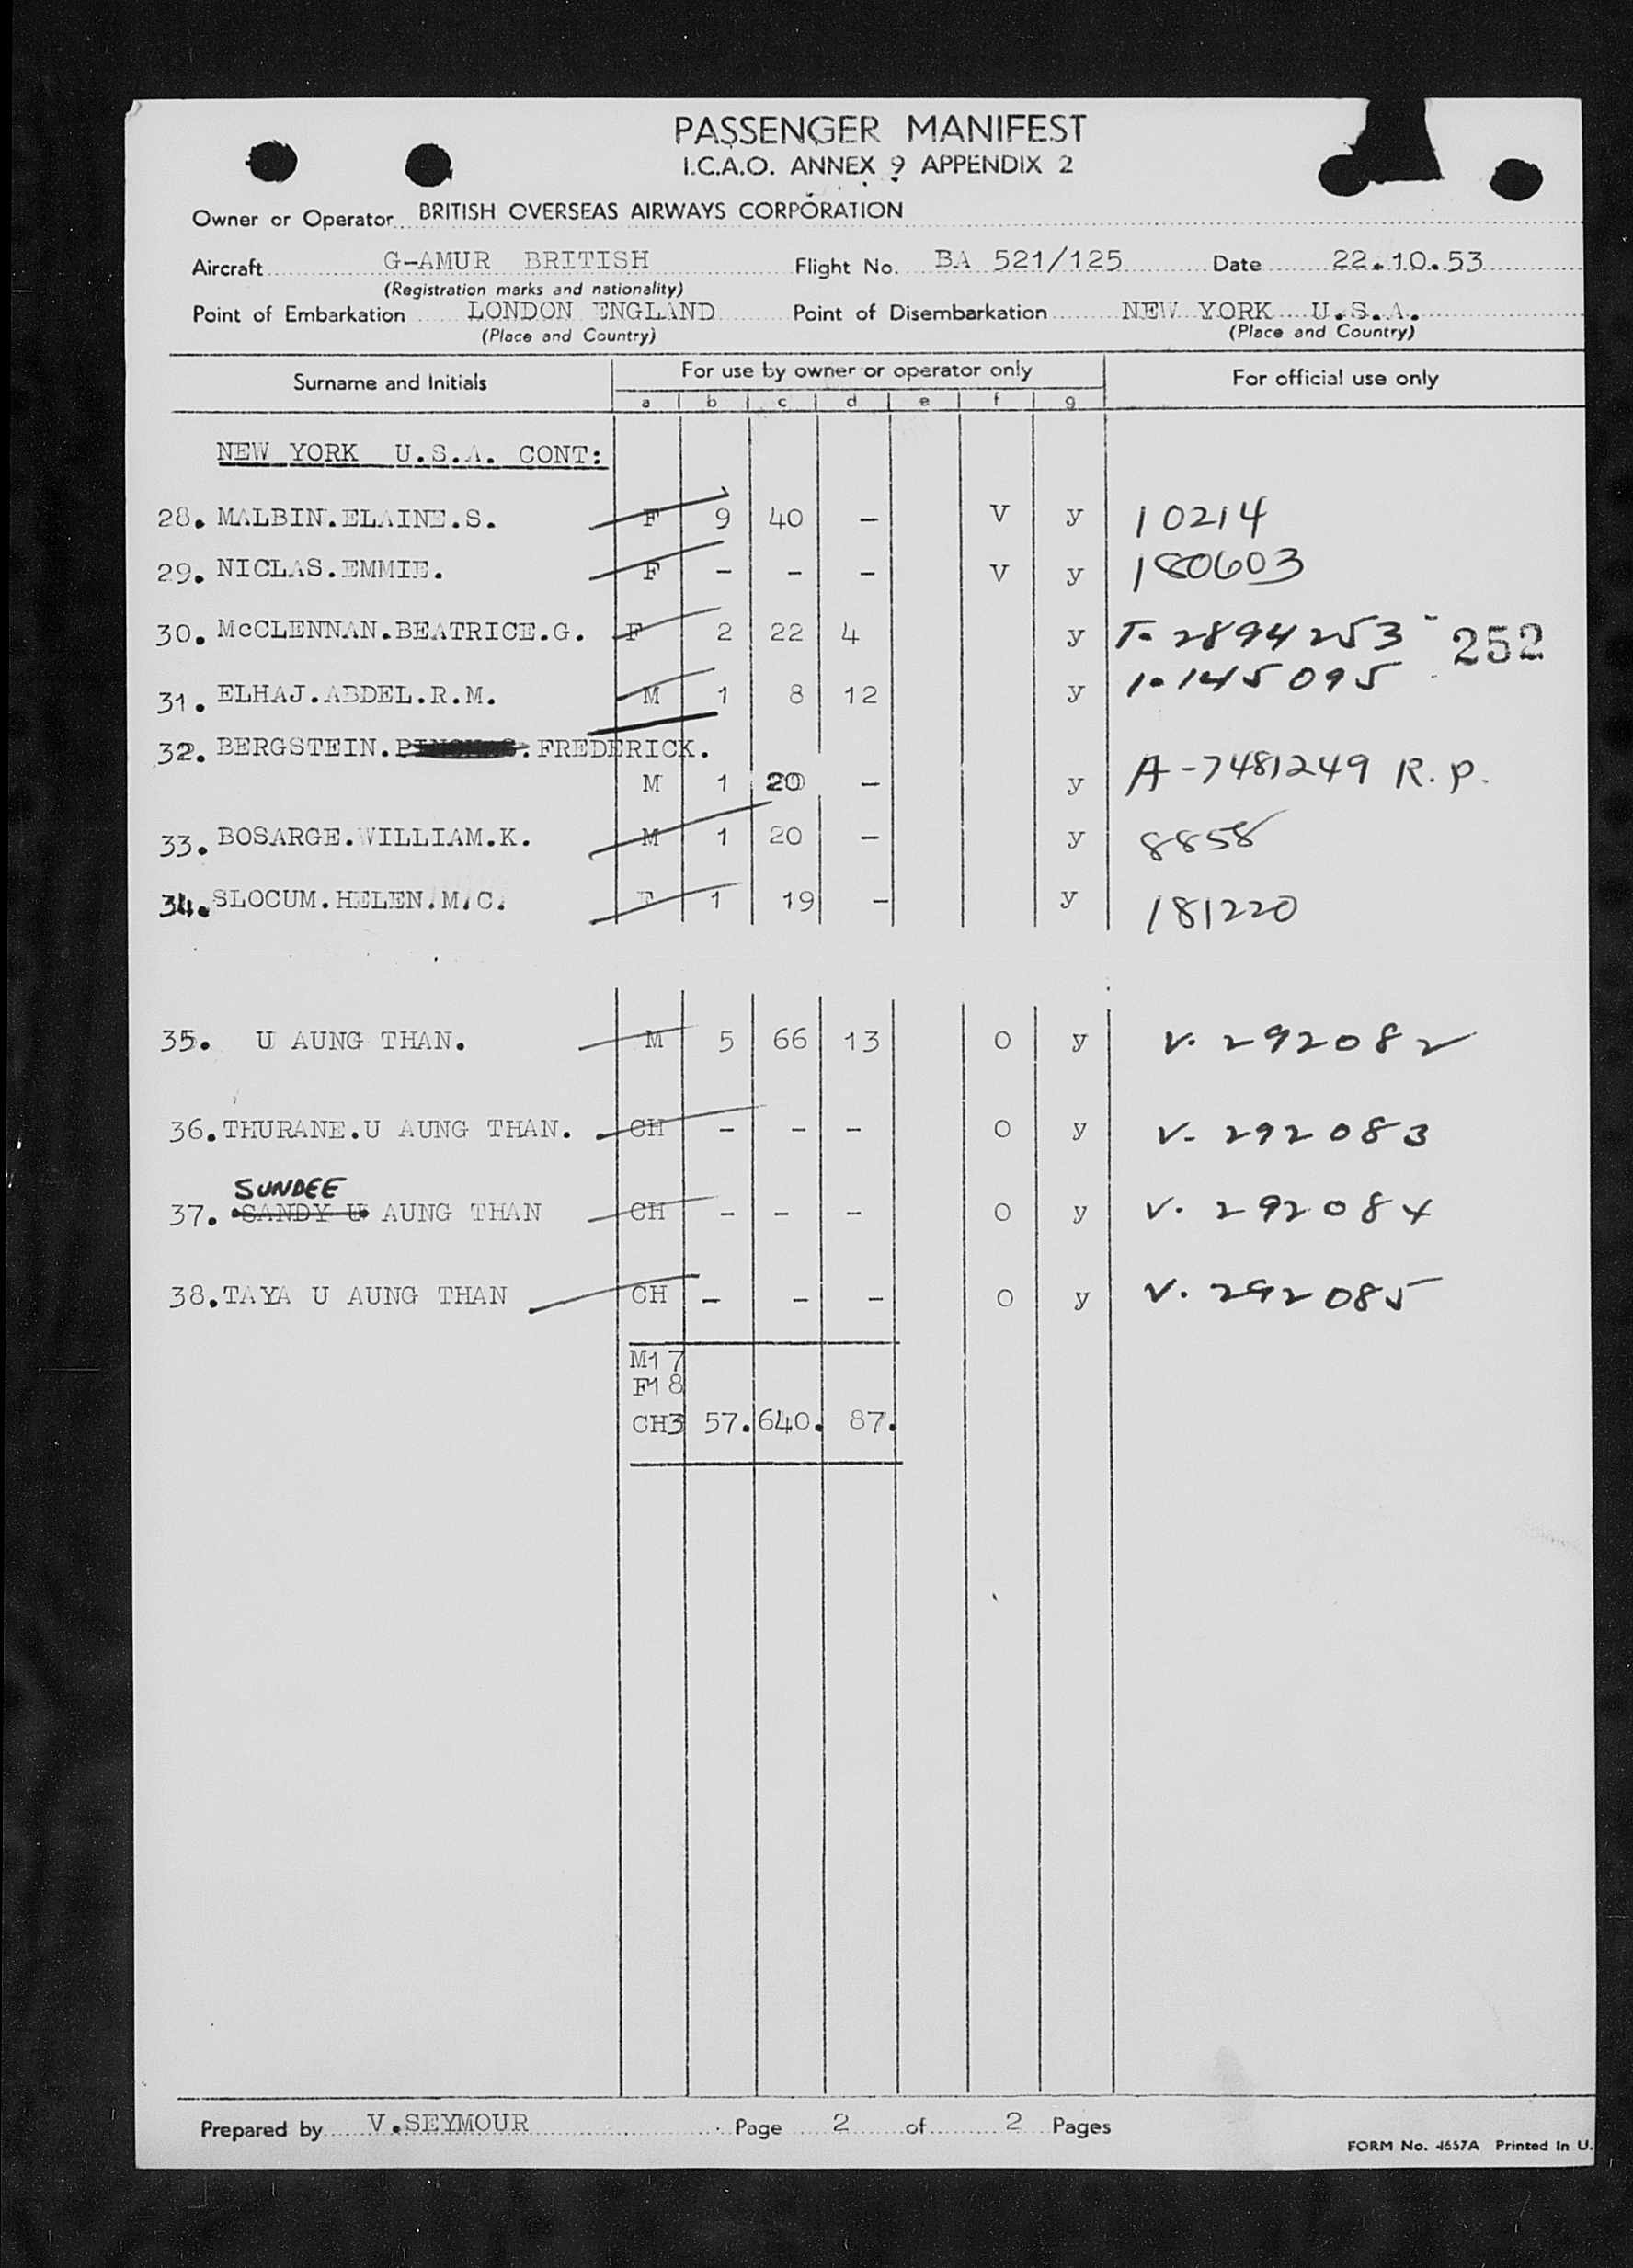 PASSENGER MANIFEST
I.C.A.O. ANNEX 9 APPENDIX 2
Owner or Operator BRITISH OVERSEAS AIRWAYS CORPORATION
Aircraft G-AMUR BRITISH Flight No. BA 521/125 Date 22.10.53
(Registration marks and nationality)
Point of Embarkation LONDON ENGLAND Point of Disembarkation NEW YORK U.S.A.
(Place and Country) (Place and Country)
Surname and Initials For use by owner or operator only For official use only
a b c d e f g
NEW YORK U.S.A. CONT:
28. MALBIN.ELAINE.S. F 9 40 - V y 10214
29. NICLAS.EMMIE. F - - - V y 180603
30. McCLENNAN.BEATRICE.G. F 2 22 4 y T-2894253 252
31. ELHAJ.ABDEL.R.M. M 1 8 12 y 1-145095
32. BERGSTEIN. .FREDERICK.
M 1 20 - y A-7481249 R.P.
33. BOSARGE.WILLIAM.K. M 1 20 - y 8858
34. SLOCUM.HELEN.M.C. F 1 19 - y 181220
35. U AUNG THAN. M 5 66 13 O y V. 292082
36. THURANE.U AUNG THAN. CH - - - O y V- 292083
SUNDEE
37. SANDY U AUNG THAN CH - - - O y V. 292084
38. TAYA U AUNG THAN CH - - - O y V. 292085
M17
F18
CH3 57. 640. 87.
Prepared by V.SEYMOUR Page 2 of 2 Pages
FORM No. 4657A Printed in U.